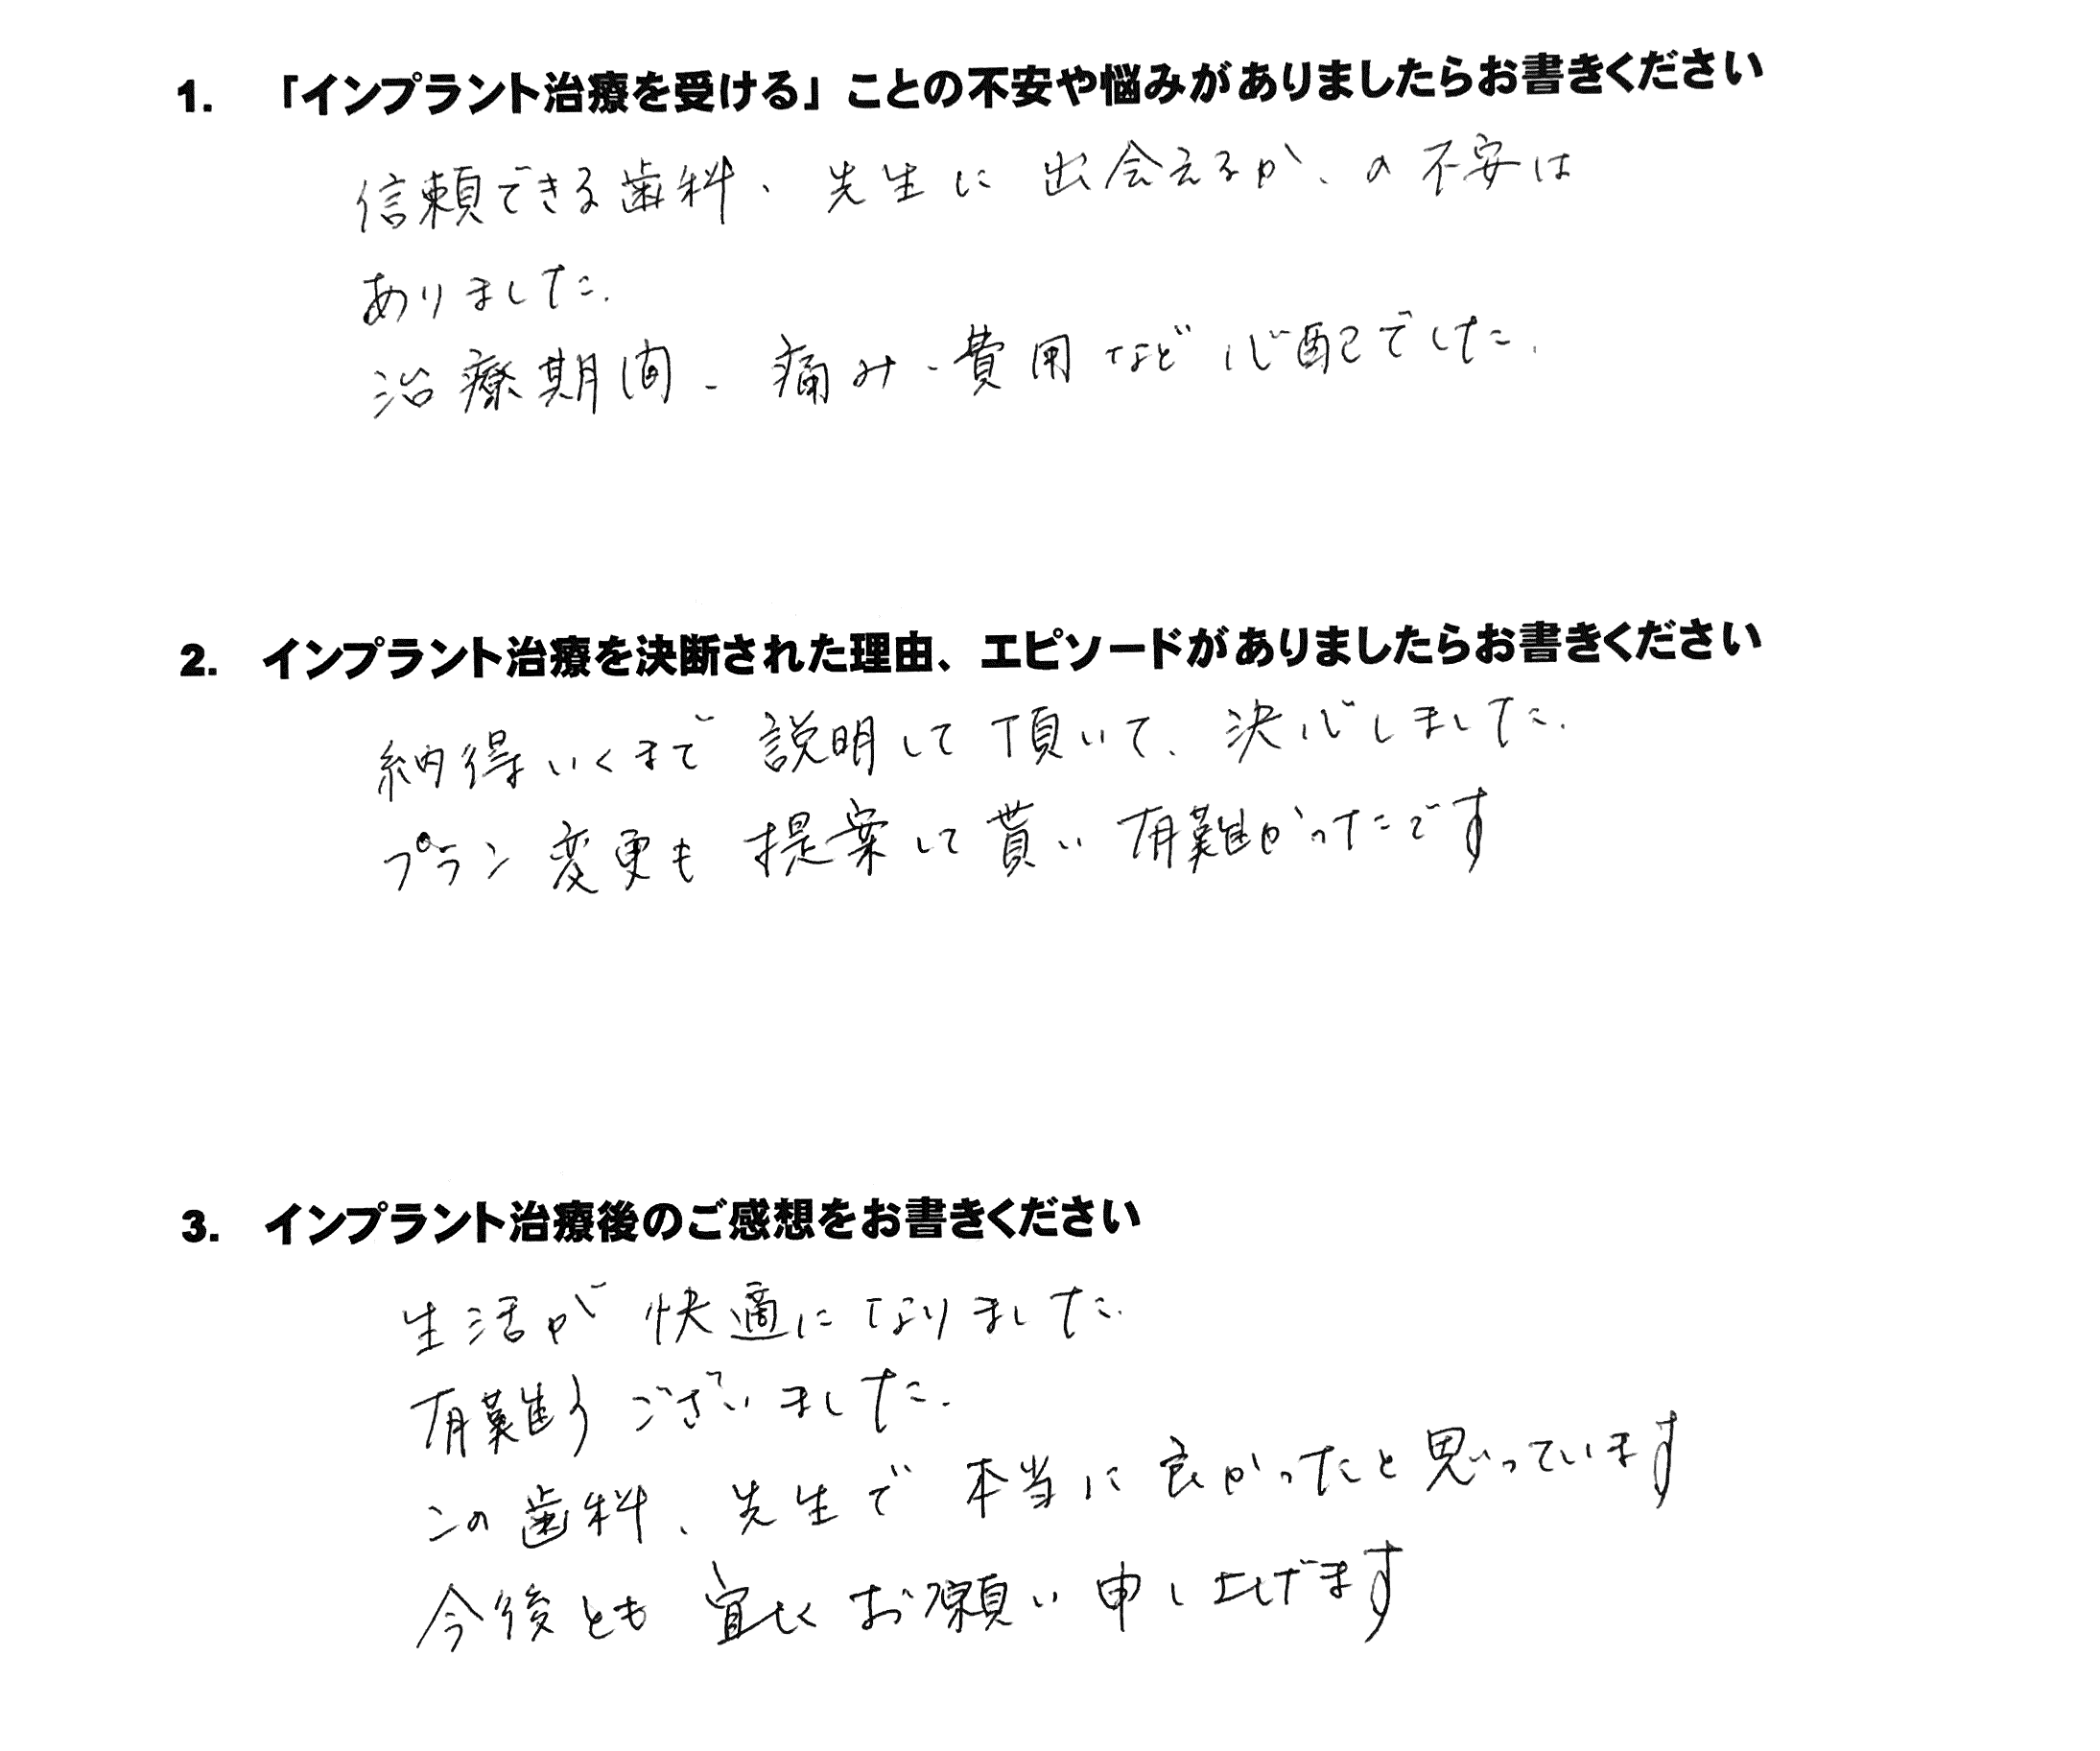 1. 「インプラント治療を受ける」ことの不安や悩みがありましたらお書きください
信頼できる歯科、先生に出会えるか、の不安は
ありました.
治療期間、痛み、費用など心配でした.
2. インプラント治療を決断された理由、エピソードがありましたらお書きください
納得いくまで説明して頂いて、決心しました.
プラン変更も提案して貰い有難かったです
3. インプラント治療後のご感想をお書きください
生活が快適になりました.
有難うございました.
この歯科、先生で本当に良かったと思っています
今後とも宜しくお願い申し上げます